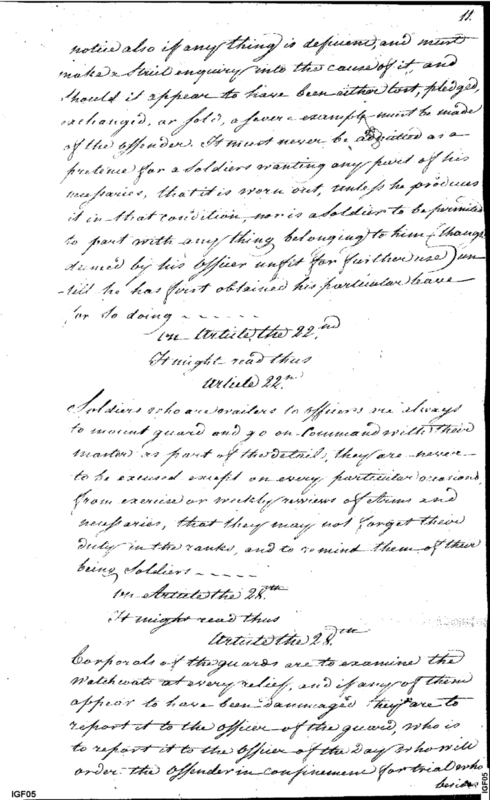 11.
notice also if any thing is deficient, and must
make a Strict enquiry into the cause of it, and
Should it appear to have been either lost, pledged,
exchanged, or sold, a severe example must be made
of the offender. It must never be admitted as a
pretence for a Soldiers wanting any part of his
necessaries, that it is worn out, unless he produces
it in that condition, nor is a Soldier to be permitted
to part with any thing belonging to him (though
deemed by his Officer unfit for further use) un
till he has first obtained his particular leave
for so doing
on Article the 22nd
It might read thus
Article 22n
Soldiers who are waiters to officers are always
to mount guard and go on Command with their
master as part of the detail, they are never
to be excused except on every particular occasions,
from exercise or weekly reviews of Arms and
necessaries, that they may not forget there
duty in the ranks, and to remind them of their
being Soldiers
on Article the 28th
It might read thus
Article the 28th
Corporals of the guards are to examine the
Watchcoats at every relief, and if any of them
appear to have been dammaged they are to
report it to the officer of the guard, who is
to report it to the Officer of the Day who will
order the Offender in confinement for trial who
besides
IGF05
IGF05